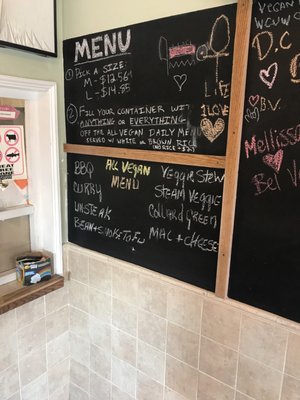 MENU
① PICK A SIZE
M - $12.56
L - $14.85
② FILL YOUR CONTAINER WITH
ANYTHING OR EVERYTHING
OFF THE ALL VEGAN DAILY MENU
SERVED W/ WHITE OR BROWN RICE
(NO RICE = $3)
4
LIFE
1LOVE
ALL VEGAN
MENU
BBQ
CURRY
UNSTEAK
BEAN + SMOKE TOFU
VEGGIE STEW
STEAM VEGGIE
COLLARD GREEN
MAC + CHEESE
VEGAN
WCUW
D.C
B.V.
Mellissa
Bel V